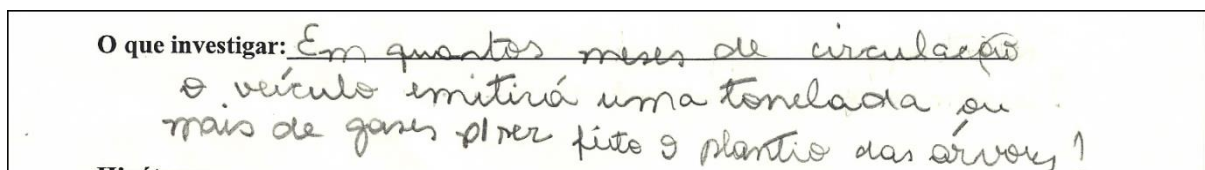 O que investigar: Em quantos meses de circulação
o veículo emitirá uma tonelada ou
mais de gases p/ ser feito o plantio das árvores?